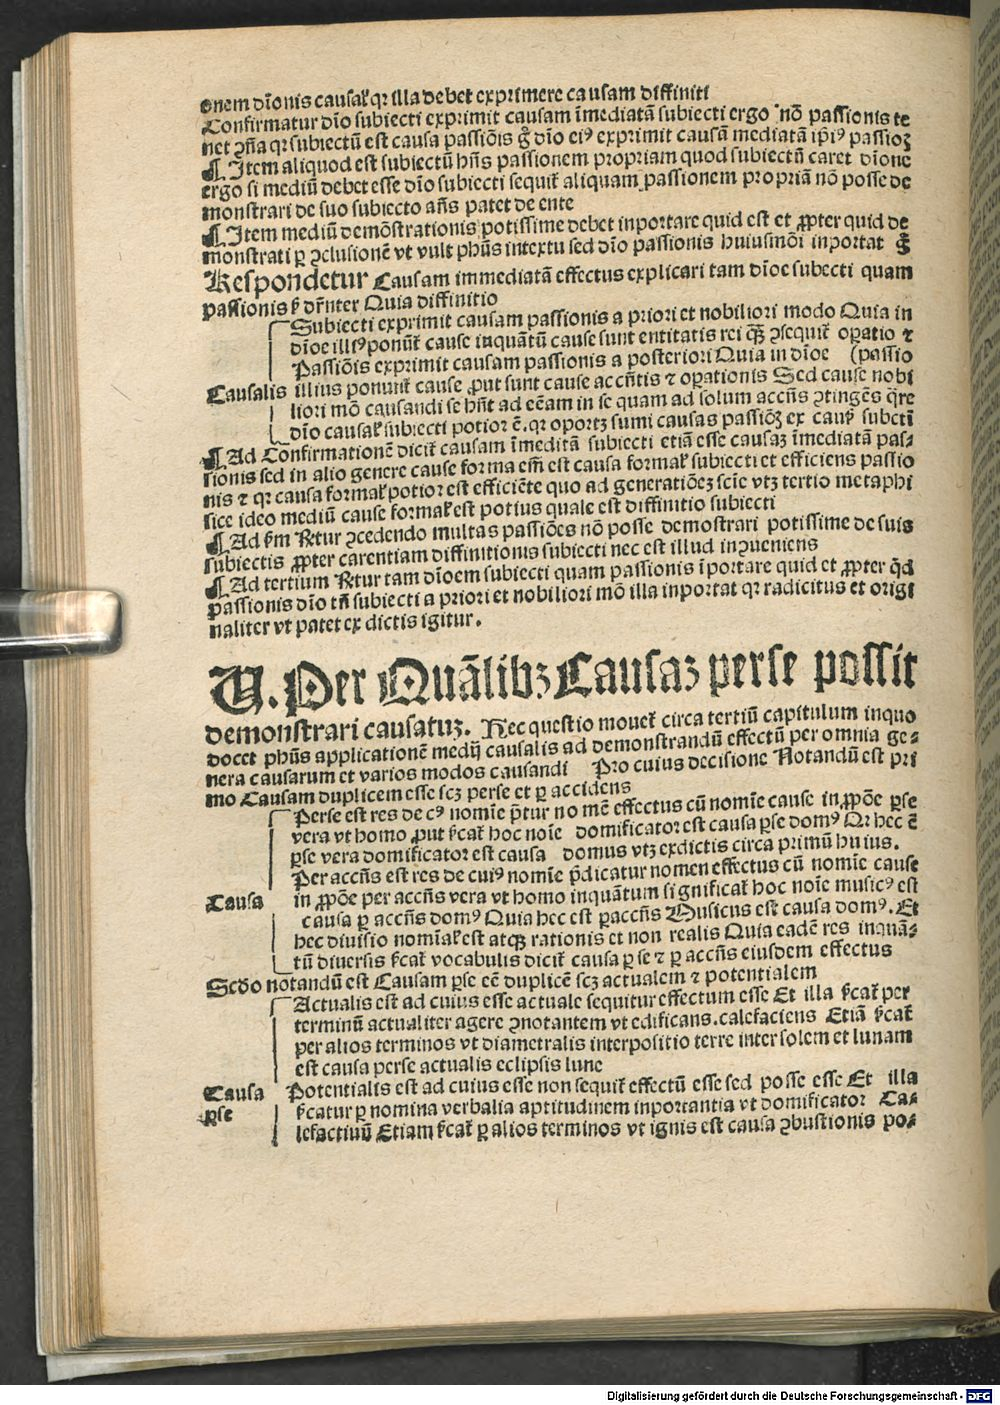 onem dīonis causaꝉ qꝛ illa debet exprimere causam diffiniti
Confirmatur dīo subiecti exprimit causam īmediatā subiecti ergo nō passionis te
net ꝯñа qꝛ subiectū est causa passiōis g̊ dīo eiꝰ exprimit causā mediatā ip̄iꝰ passioꝫ
¶ Item aliquod est subiectū hñs passionem propriam quod subiectū caret dīone
ergo si mediū debet esse dīo subiecti sequit̄ aliquam passionem propriā nō posse de
monstrari de suo subiecto añs patet de ente
¶ Item mediū demōstrationis potissime debet inportare quid est et ꝓpter quid de
monstrati ꝑ ꝯclusionē vt vult phūs intextu sed dīo passionis huiusmōi inportat g̊
Respondetur Causam immediatā effectus explicari tam dīoe subecti quam
passionis ẜ dr̄nter Quia diffinitio
Subiecti exprimit causam passionis a priori et nobiliori modo Quia in
dīoe illiꝰ ponūt̄ cause inquātū cause sunt entitatis rei q̄ꝫ ꝯsequit̄ oꝑatio ⁊
Passiōis exprimit causam passionis a posteriori Quia in dīoe (passio
Causalis illius ponunt̄ cause ꝓut sunt cause accñtis ⁊ oꝑationis Sed cause nobi
liori mō causandi se hñt ad eēam in se quam ad solum accñs ꝯtingēs q̄re
dīo causaꝉ subiecti potior ē. qꝛ oportꝫ sumi causas passiōꝫ ex cauẜ subcti
¶ Ad Confirmationē dicit̄ causam īmeditā subiecti etiā esse causaꝫ īmediatā pas⸗
sionis sed in alio genere cause forma em̄ est causa formaꝉ subiecti et efficiens passio
nis ⁊ qꝛ causa formaꝉ potior est efficiēte quo ad generatiōeꝫ scīe vtꝫ tertio metaphi
sice ideo mediū cause formaꝉ est potius quale est diffinitio subiecti
¶ Ad ẜm Rtur ꝯcedendo multas passiōes nō posse demostrari potissime de suis
subiectis ꝓpter carentiam diffinitionis subiecti nec est illud inꝯueniens
¶ Ad tertium Rtur tam dīoem subiecti quam passionis īportare quid et ꝓpter q̄d
passionis dīo tn̄ subiecti a priori et nobiliori mō illa inportat qꝛ radicitus et origi
naliter vt patet ex dictis igitur.
V. Per Quālibꝫ Causaꝫ perse possit
demonstrari causatuꝫ. Hec questio mouet̄ circa tertiū capitulum inquo
docet phūs applicationē medij causalis ad demonstrandū effectū per omnia ge⸗
nera causarum et varios modos causandi Pro cuius decisione Notandū est pri
mo Causam duplicem esse scꝫ perse et ꝑ accidens
Perse est res de cꝰ nomīe p̄tur nomē effectus cū nomīe cause in ꝓpōe ꝑse
vera vt homo ꝓut ẜcat̄ hoc noīe domificator est causa ꝑse domꝰ Qꝛ hec ē
ꝑse vera domificator est causa domus vtꝫ exdictis circa primū huius.
Per accñs est res de cuiꝰ nomīe p̄dicatur nomen effectus cū nomīe cause
Causa in ꝓpōe per accñs vera vt homo inquātum significat̄ hoc noīe musicꝰ est
causa ꝑ accñs domꝰ Quia hec est ꝑaccñs Musicus est causa domꝰ. Et
hec diuisio nomīaꝉ est atqꝫ rationis et non realis Quia eadē res inquā⸗
tū diuersis ẜcat̄ vocabulis dicit̄ causa ꝑ se ⁊ ꝑ accñs eiusdem effectus
Scd̄o notandū est Causam ꝑse eē duplicē scꝫ actualem ⁊ potentialem
Actualis est ad cuius esse actuale sequitur effectum esse Et illa ẜcat̄ per
terminū actualiter agere ꝯnotantem vt edificans. calefaciens Etiā ẜcat̄
per alios terminos vt diametralis interpositio terre inter solem et lunam
est causa perse actualis eclipsis lune
Causa Potentialis est ad cuius esse non sequit̄ effectū esse sed posse esse Et illa
ꝑse ẜcatur ꝑ nomina verbalia aptitudinem inportantia vt domificator Ca⸗
lefactiuū Etiam ẜcat̄ ꝑ alios terminos vt ignis est causa ꝯbustionis po⸗
Digitalisierung gefördert durch die Deutsche Forschungsgemeinschaft - DFG